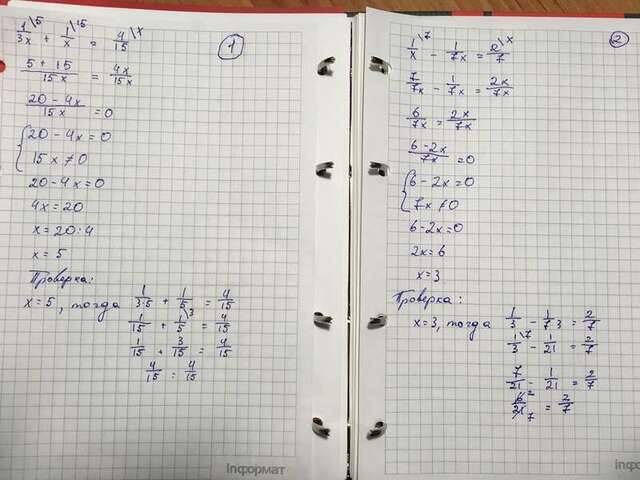 1
1/3x \5 + 1/x \15 = 4/15 \x
(5 + 15)/15x = 4x/15x
(20 - 4x)/15x = 0
{ 20 - 4x = 0
15x ≠ 0
20 - 4x = 0
4x = 20
x = 20 : 4
x = 5
Проверка:
x = 5, тогда 1/3·5 + 1/5 = 4/15
1/15 + 1/5 \3 = 4/15
1/15 + 3/15 = 4/15
4/15 = 4/15
informat
2
1/x \7 - 1/7x = 2/7 \x
7/7x - 1/7x = 2x/7x
6/7x = 2x/7x
(6 - 2x)/7x = 0
{ 6 - 2x = 0
7x ≠ 0
6 - 2x = 0
2x = 6
x = 3
Проверка:
x = 3, тогда 1/3 - 1/7·3 = 2/7
1/3 \7 - 1/21 = 2/7
7/21 - 1/21 = 2/7
6/21 2/7 = 2/7
informat